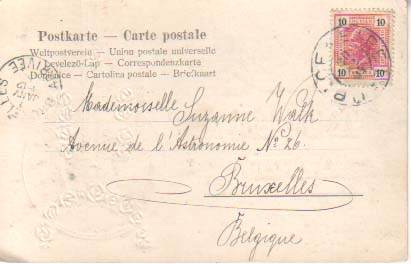 Postkarte — Carte postale
Weltpostverein — Union postale universelle
Levelező-Lap — Correspondenzkarte
Dopisnice — Cartolina postale — Briefkaart
10 10
10 10
Mademoiselle Suzanne Walk
Avenue de l'Astronomie No 26.
Bruxelles
Belgique